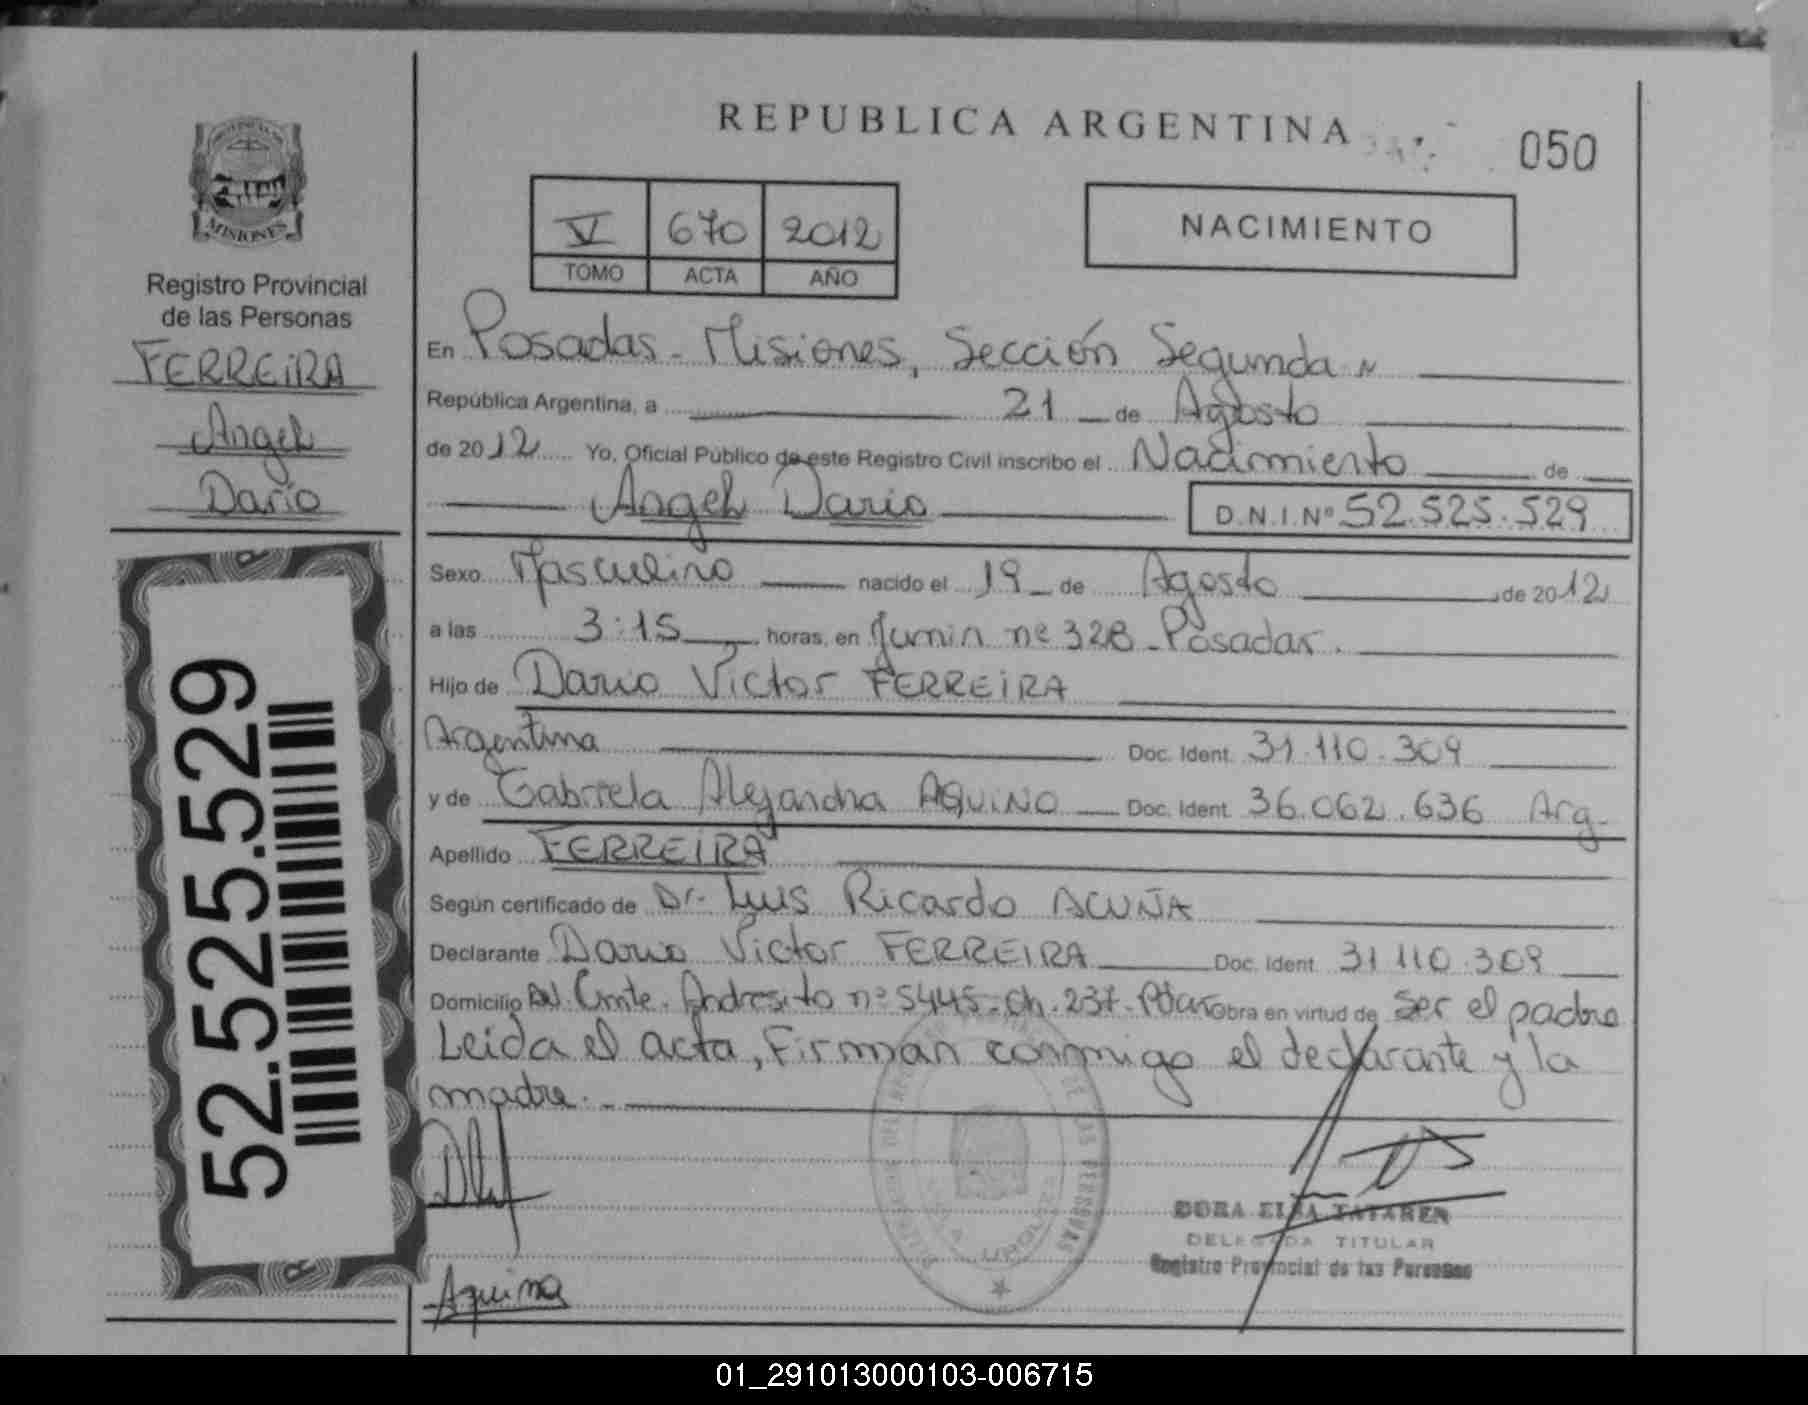 REPUBLICA ARGENTINA
050
MISIONES
Registro Provincial
de las Personas
FERREIRA
Angel
Darío
52.525.529
V 670 2012
TOMO ACTA AÑO
NACIMIENTO
En Posadas - Misiones, Sección Segunda
República Argentina, a 21 de Agosto
de 2012 Yo, Oficial Público de este Registro Civil inscribo el Nacimiento de
Angel Dario D.N.I.Nº 52.525.529
Sexo Masculino nacido el 19 de Agosto de 2012
a las 3:15 horas, en Junin nº 328 - Posadas.
Hijo de Dario Victor FERREIRA
Argentina Doc. Ident. 31.110.309
y de Gabriela Alejandra AQUINO Doc. Ident. 36.062.636 Arg.
Apellido FERREIRA
Según certificado de Dr. Luis Ricardo ACUÑA
Declarante Dario Victor FERREIRA Doc. Ident. 31.110.309
Domicilio Av. Cmte. Andresito nº 5445 - Ch. 237 - Pdas Obra en virtud de ser el padre
Leida el acta, Firman conmigo el declarante y la
madre.
DORA ELSA
DELEGADA TITULAR
Registro Provincial de las Personas
Aquino
01_291013000103-006715